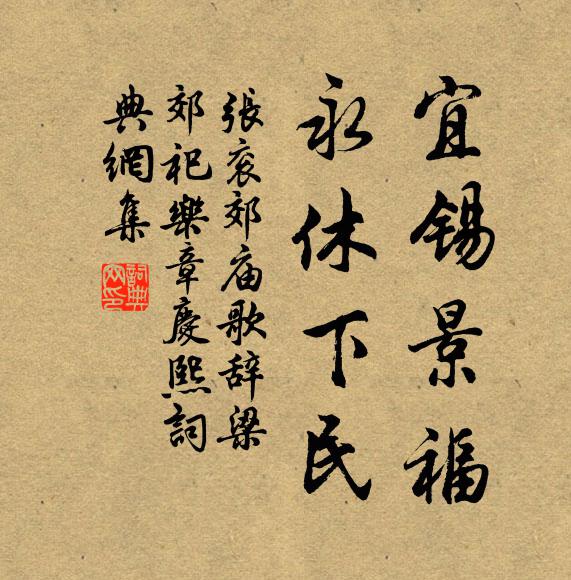 宜锡景福
永休下民
張衮郊庙歌辞梁
郊祀樂章慶熙詞
典網集
詞典
网印